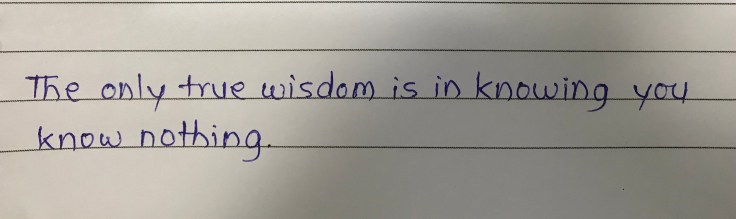 The only true wisdom is in knowing you
know nothing.